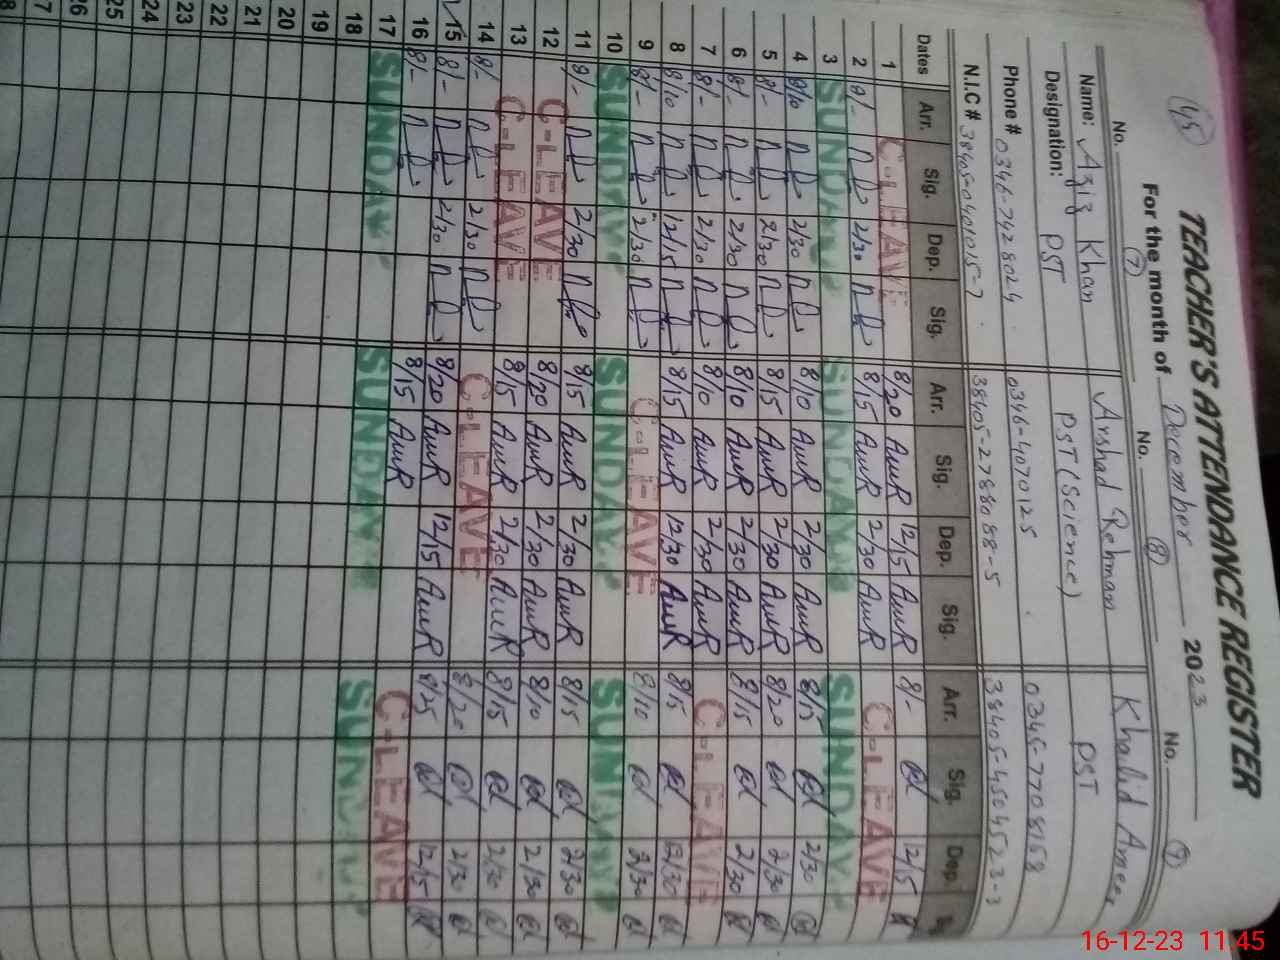 45
TEACHER'S ATTENDANCE REGISTER
For the month of December 2023
No. (7) No. (8) No. (9)
Name: Aziz Khan Arshad Rehman Khalid Ameer
Designation: PST PST (Science) PST
Phone # 0346-7428024 0346-4070125 0345-7708158
N.I.C # 38405-0401015-7 38405-2788088-5 38405-4504523-3
Dates Arr. Sig. Dep. Sig. Arr. Sig. Dep. Sig. Arr. Sig. Dep.
1 C-LEAVE 8/20 AmR 12/15 AmR 8/- 12/15
2 8/- 2/30 8/15 AmR 2/30 AmR C-LEAVE
3 SUNDAY SUNDAY SUNDAY
4 8/10 2/30 8/10 AmR 2/30 AmR 8/15 2/30
5 8/- 2/30 8/15 AmR 2/30 AmR 8/20 2/30
6 8/- 2/30 8/10 AmR 2/30 AmR 8/15 2/30
7 8/- 2/30 8/10 AmR 2/30 AmR C-LEAVE
8 8/10 12/15 8/15 AmR 12/30 AmR 8/15 12/30
9 8/- 2/30 C-LEAVE 8/10 2/30
10 SUNDAY SUNDAY SUNDAY
11 8/- 2/30 8/15 AmR 2/30 AmR 8/15 2/30
12 C-LEAVE 8/20 AmR 2/30 AmR 8/10 2/30
13 C-LEAVE 8/15 AmR 2/30 AmR 8/15 2/30
14 8/- 2/30 C-LEAVE 8/20 2/30
15 8/- 2/30 8/20 AmR 12/15 AmR 8/25 12/15
16 8/- 8/15 AmR C-LEAVE
17 SUNDAY SUNDAY SUNDAY
18
19
20
21
22
23
24
25
26
27
16-12-23 11.45